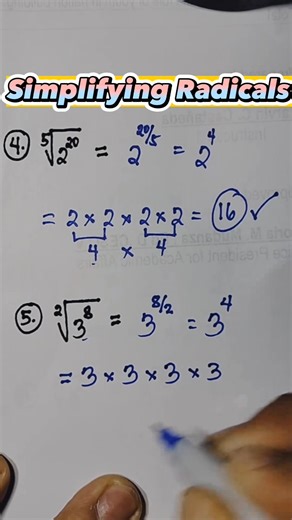 Simplifying Radicals
4. ⁵√2²⁰ = 2^20/5 = 2⁴
= 2 × 2 × 2 × 2 = 16 ✓
4 × 4
5. ²√3⁸ = 3^8/2 = 3⁴
= 3 × 3 × 3 × 3